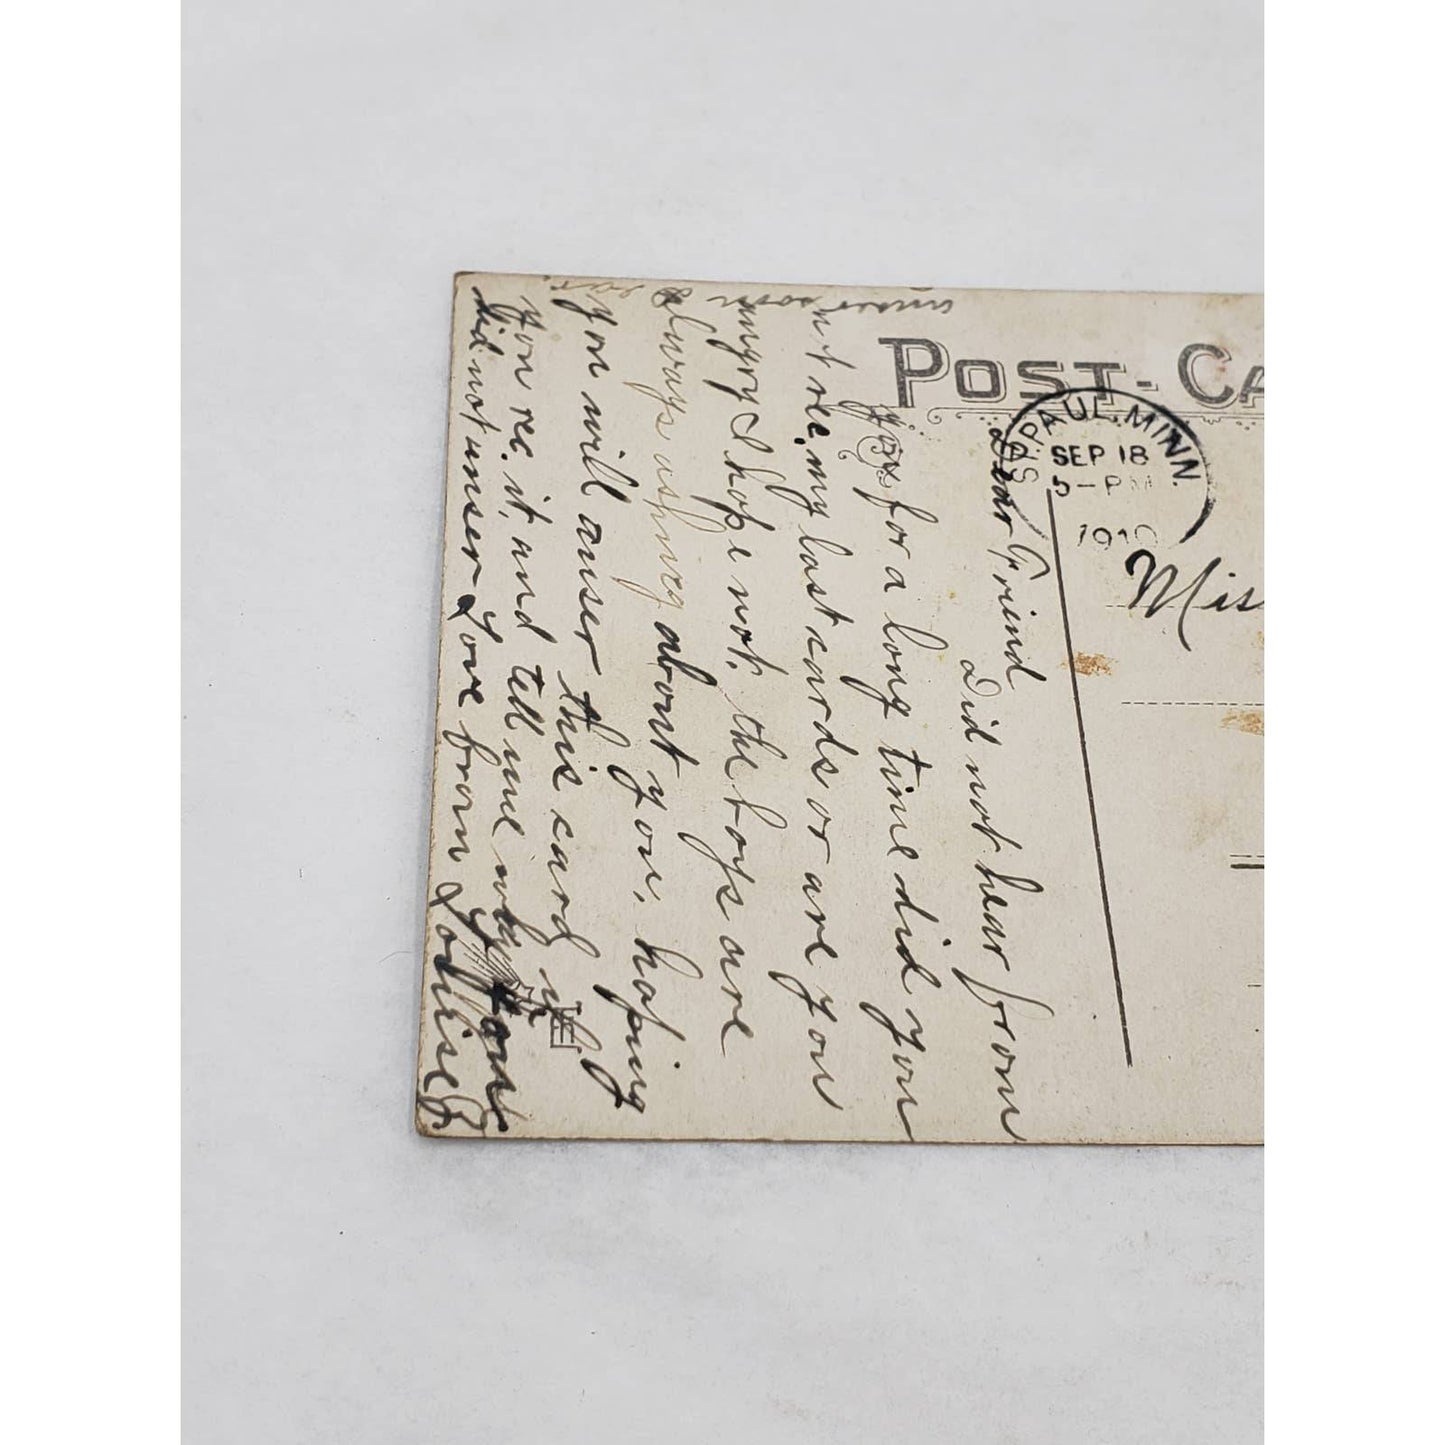 POST-CA
ST. PAUL. MINN.
SEP 18
5-P
191
Miss
Dear Friend
Did not hear from
you for a long time did you
not rec. my last cards or are you
angry I hope not, the boys are
always asking about you, hoping
you will anser this card if
you rec. it, and tell me why you
did not anser. Love from Louise
anser soon